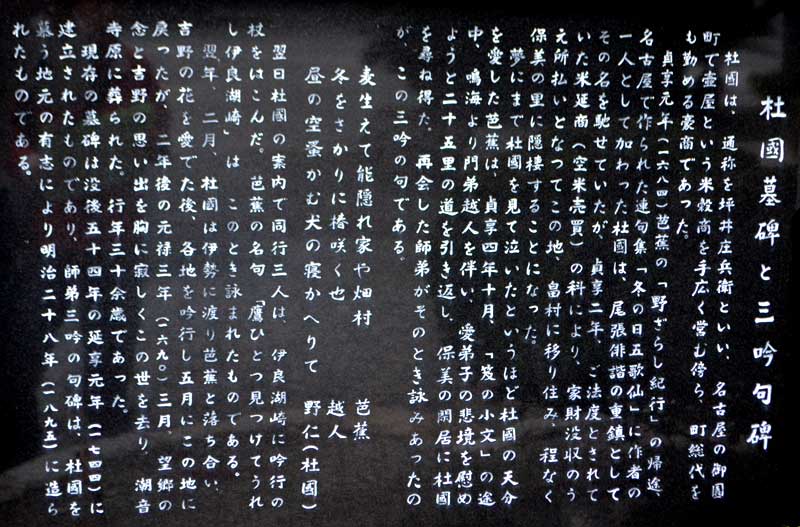 杜國墓碑と三吟句碑
杜國は、通称を坪井庄兵衛といい、名古屋の御園
町で壷屋という米穀商を手広く営む傍ら、町総代を
も勤める豪商であった。
貞享元年（一六八四）芭蕉の「野ざらし紀行」の帰途、
名古屋で作られた連句集「冬の日五歌仙」に作者の
一人として加わった杜國は、尾張俳諧の重鎮として
その名を馳せていたが、貞享二年、ご法度とされて
いた米延商（空米売買）の科により、家財没収のう
え所払いとなってこの地、畠村に移り住み、程なく
保美の里に隠棲することになった。
夢にまで杜國を見て泣いたというほど杜國の天分
を愛した芭蕉は、貞享四年十月、「笈の小文」の途
中、鳴海より門弟越人を伴い、愛弟子の悲境を慰め
ようと二十五里の道を引き返し、保美の閑居に杜國
を尋ね得た。再会した師弟がそのとき詠みあったの
が、この三吟の句である。
麦生えて能隠れ家や畑村　芭蕉
冬をさかりに椿咲く也　越人
昼の空蚤かむ犬の寝かへりて　野仁（杜國）
翌日杜國の案内で同行三人は、伊良湖崎に吟行の
杖をはこんだ。芭蕉の名句「鷹ひとつ見つけてうれ
し伊良湖崎」は、このとき詠まれたものである。
翌年、二月、杜國は伊勢に渡り芭蕉と落ち合い、
吉野の花を愛でた後、各地を吟行し五月にこの地に
戻ったが、二年後の元禄三年（一六九〇）三月、望郷の
念と吉野の思い出を胸に寂しくこの世を去り、潮音
寺原に葬られた。行年三十余歳であった。
現存の墓碑は没後五十四年の延享元年（一七四四）に
建立されたものであり、師弟三吟の句碑は、杜國を
慕う地元の有志により明治二十八年（一八九五）に造ら
れたものである。